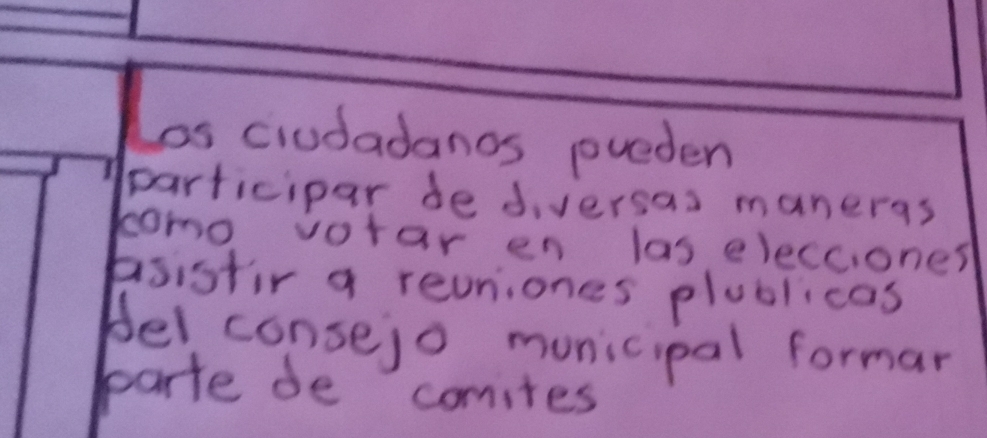 Los ciudadanos pueden
participar de diversas maneras
como votar en las elecciones
asistir a reuniones plublicas
del consejo municipal formar
parte de comites